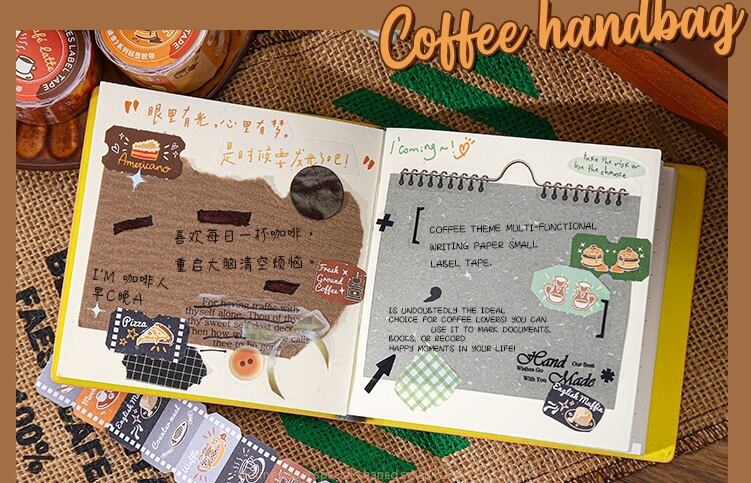 Coffee handbag
"眼里有光，心里有梦。
是时候要发光了吧！"
Americano
喜欢每日一杯咖啡，
重启大脑清空烦恼。
I'M 咖啡人
早C晚A
Fresh x
Ground
Coffee
For having traffic with
thyself alone, Thou of thy
Thy sweet self dost
Then how calls
thee to be
Pizza
I'coming~!
take the risk or
lose the chance
COFFEE THEME MULTI-FUNCTIONAL
WRITING PAPER SMALL
LABEL TAPE.
IS UNDOUBTEDLY THE IDEAL
CHOICE FOR COFFEE LOVERS! YOU CAN
USE IT TO MARK DOCUMENTS,
BOOKS, OR RECORD
HAPPY MOMENTS IN YOUR LIFE!
Hand Made
Our Best
Wishes Go
With You
English Muffin
English Muffin
Waffle
100%